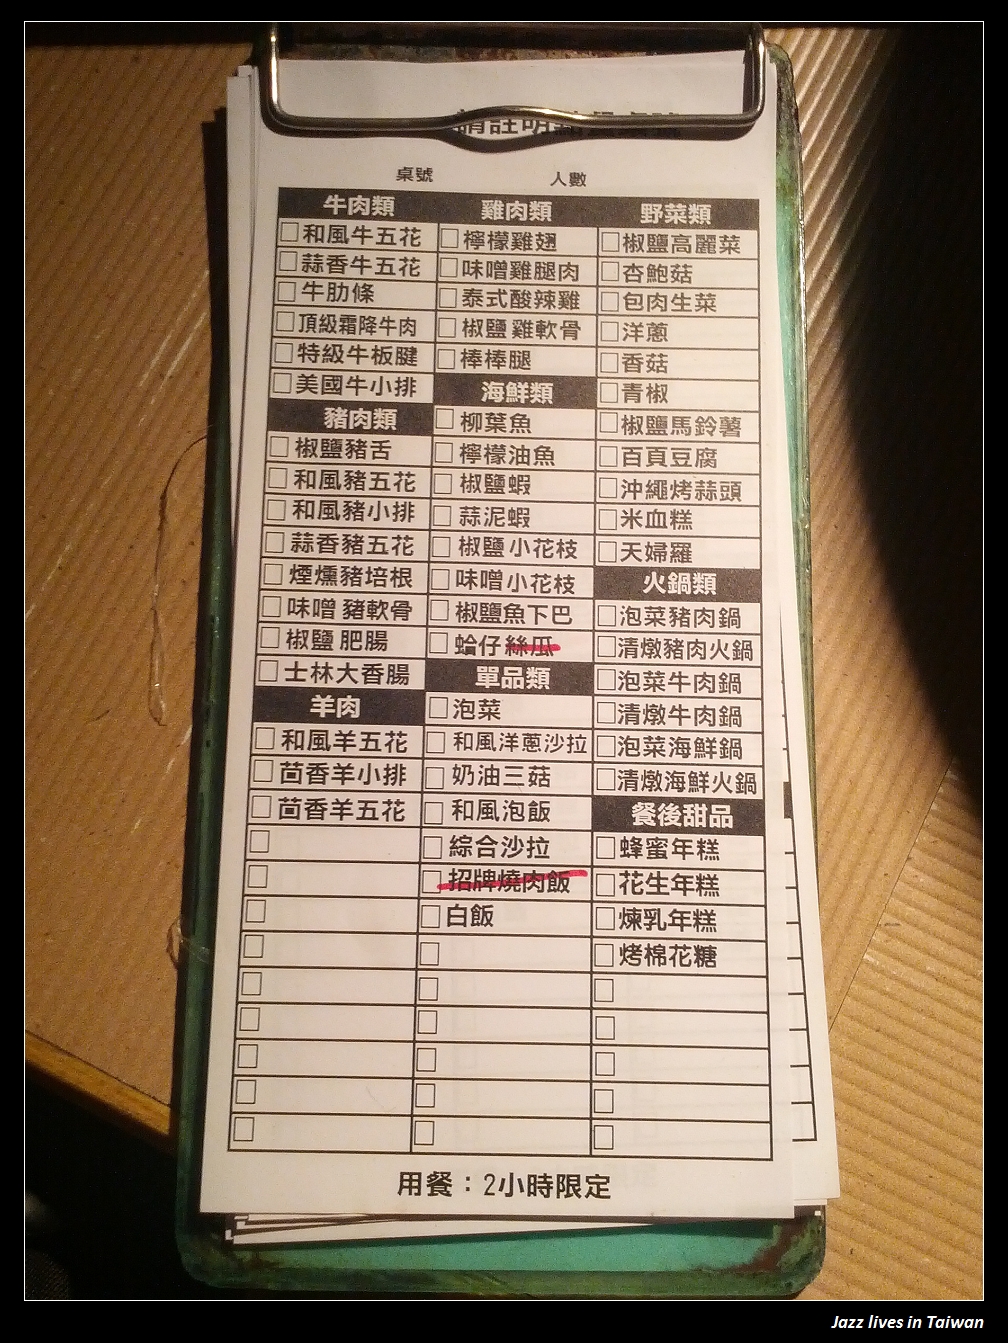 請註明點
桌號 人數
牛肉類
和風牛五花
蒜香牛五花
牛肋條
頂級霜降牛肉
特級牛板腱
美國牛小排
豬肉類
椒鹽豬舌
和風豬五花
和風豬小排
蒜香豬五花
煙燻豬培根
味噌豬軟骨
椒鹽肥腸
士林大香腸
羊肉
和風羊五花
茴香羊小排
茴香羊五花
雞肉類
檸檬雞翅
味噌雞腿肉
泰式酸辣雞
椒鹽雞軟骨
棒棒腿
海鮮類
柳葉魚
檸檬油魚
椒鹽蝦
蒜泥蝦
椒鹽小花枝
味噌小花枝
椒鹽魚下巴
蛤仔絲瓜
單品類
泡菜
和風洋蔥沙拉
奶油三菇
和風泡飯
綜合沙拉
招牌燒肉飯
白飯
野菜類
椒鹽高麗菜
杏鮑菇
包肉生菜
洋蔥
香菇
青椒
椒鹽馬鈴薯
百頁豆腐
沖繩烤蒜頭
米血糕
天婦羅
火鍋類
泡菜豬肉鍋
清燉豬肉火鍋
泡菜牛肉鍋
清燉牛肉鍋
泡菜海鮮鍋
清燉海鮮火鍋
餐後甜品
蜂蜜年糕
花生年糕
煉乳年糕
烤棉花糖
用餐：2小時限定
Jazz lives in Taiwan